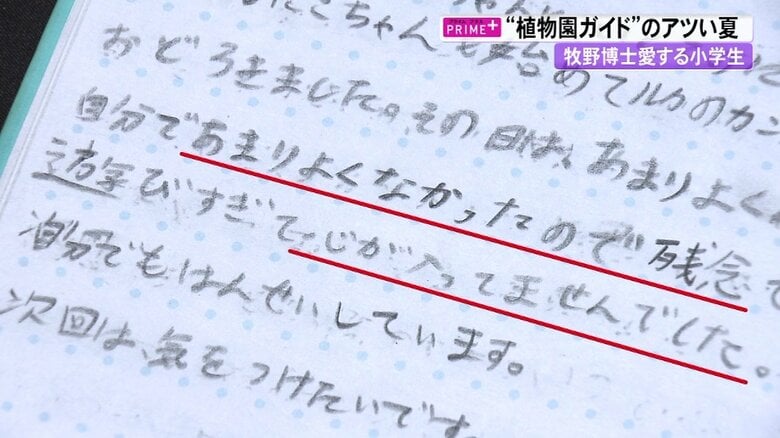 PRIME+
“植物園ガイド”のアツい夏
牧野博士愛する小学生
こちゃんも始めてルカのカン
おどろきました。その日は、あまりよく
自分であまりよくなかったので残念で
遊びすぎて心が入ってませんでした。
自分でもはんせいしています。
次回は、気をつけたいです